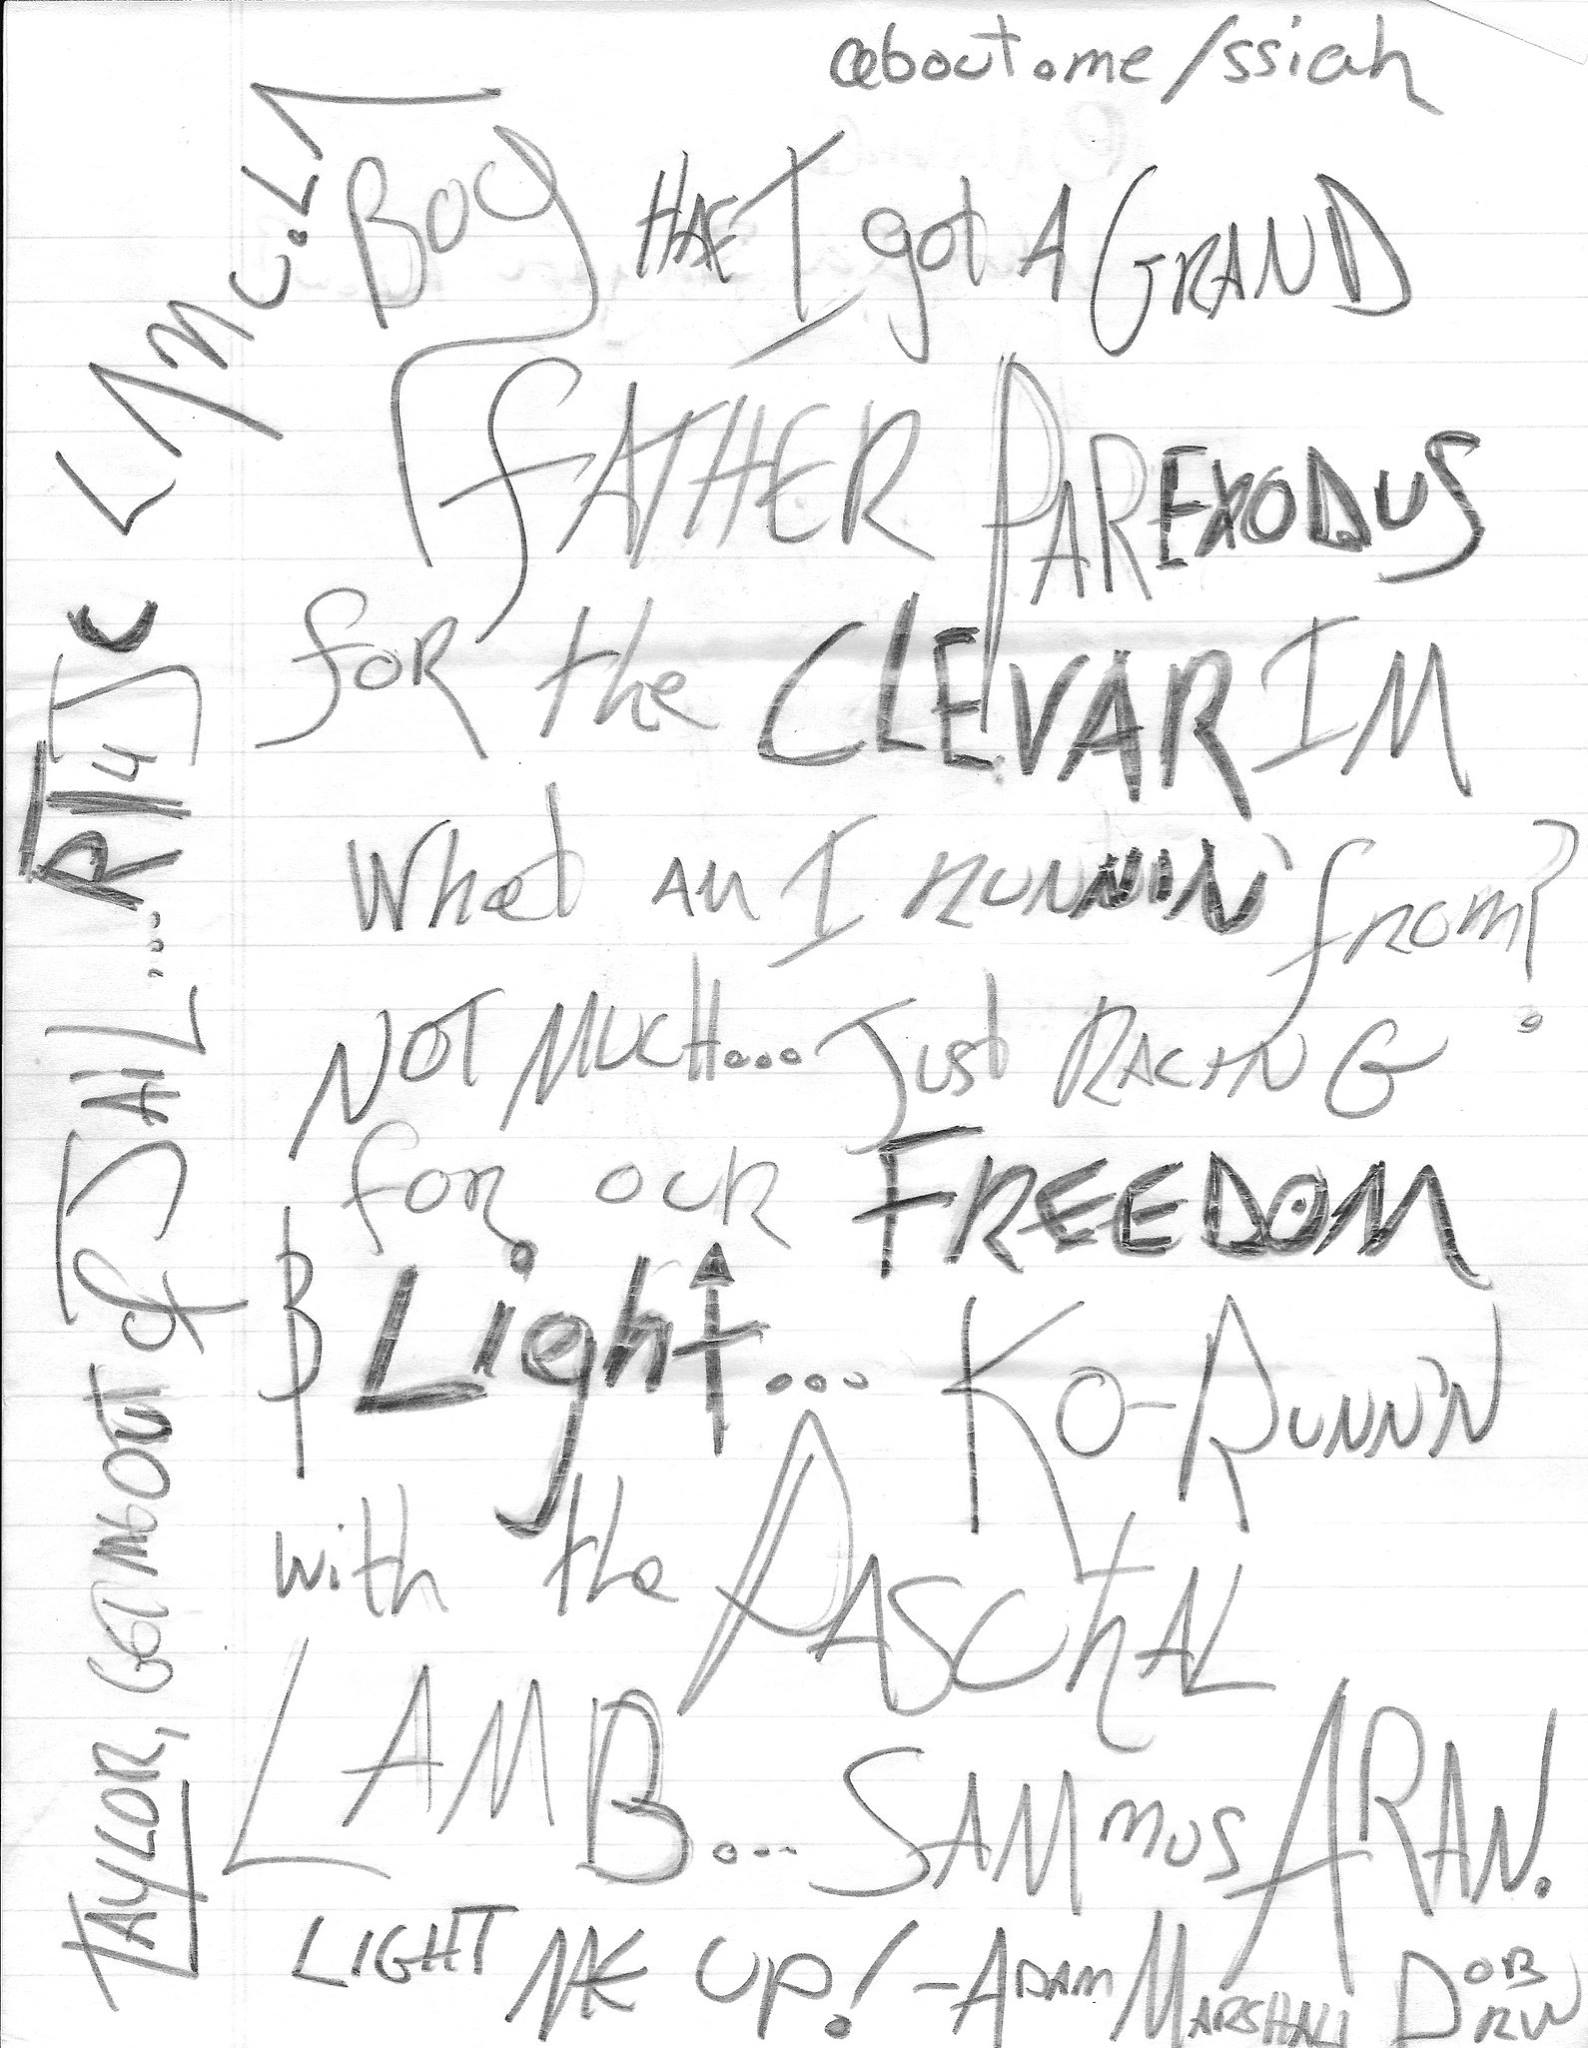 about.me/ssiah
BOY HAE I got A GRAND
fATHER PAREXODUS
foR the CLEVAR IM
What AM I RUNNIN' fROM?
NOT MUCH... Just RACING
foR OUR FREEDOM
Light... KO-RUNN'N
with the PASChAL
LAMB... SAMmUS ARAN.
LIGHT ME UP! -ADAM MARSHALL DOBRIN
TAYLOR, GETINGOUT of JAIL...